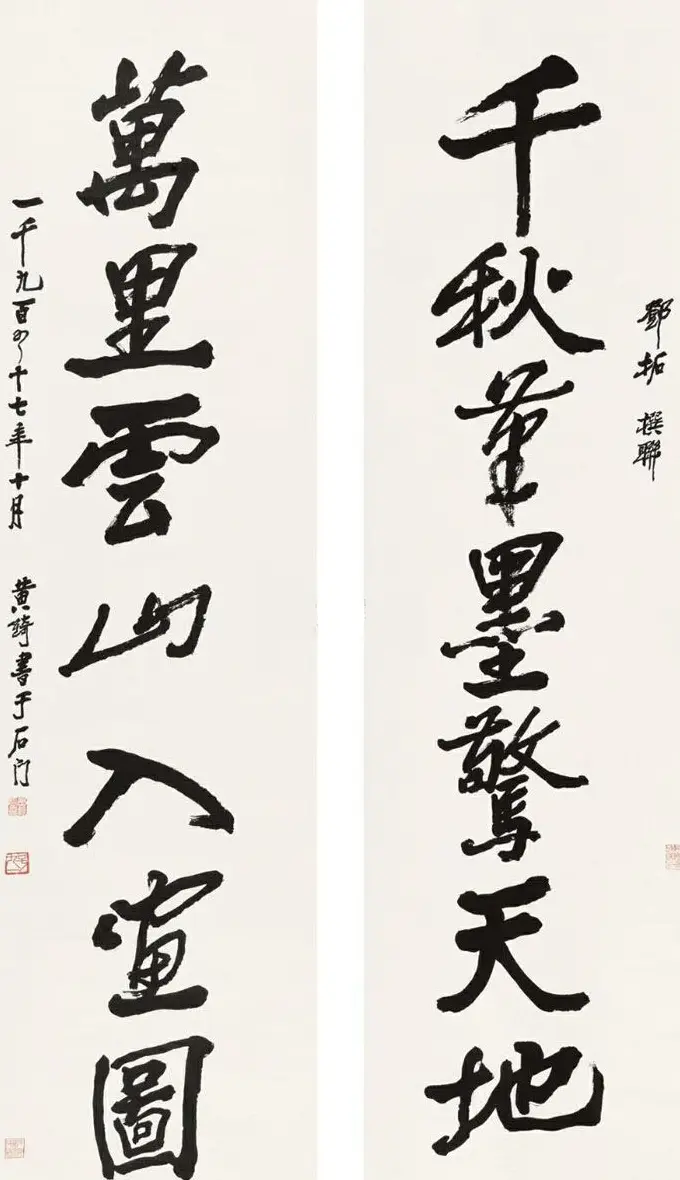 鄧拓 撰聯
千秋筆墨驚天地
萬里雲山入畫圖
一千九百八十七年十月 黄綺書于石门